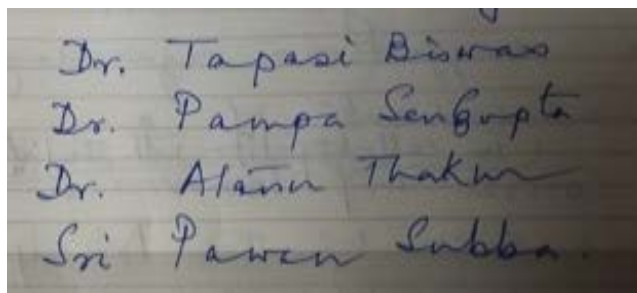 Dr. Tapasi Biswas
Dr. Pampa SenGupta
Dr. Thakur
Sri Pawan Subba.